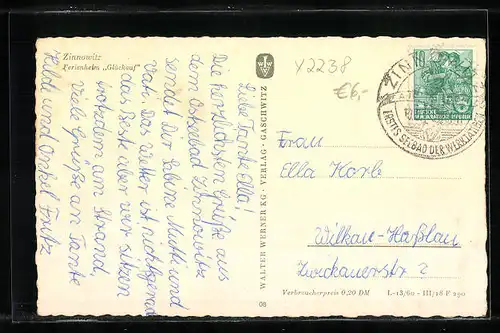 Zinnowitz
Ferienheim „Glückauf"
Liebe Tante Ella!
Die herzlichsten Grüße aus
dem Ostseebad Zinnowitz
sendet Dir Sabine, Mutti und
Vati. Das Wetter ist nicht gerade
das Beste aber wir sitzen
trotzdem am Strand,
Viele Grüße an Tante
Hilde und Onkel Fritz
WALTER WERNER KG · VERLAG · GASCHWITZ
08
Y2238
€6,-
ZINNOWITZ
ERSTES SEEBAD DER WERKTÄTIGEN
10
Frau
Ella Korb
Wilkau-Haßlau
Zwickauerstr 2
Verbraucherpreis 0,20 DM L-15/60 - III/18 F 290